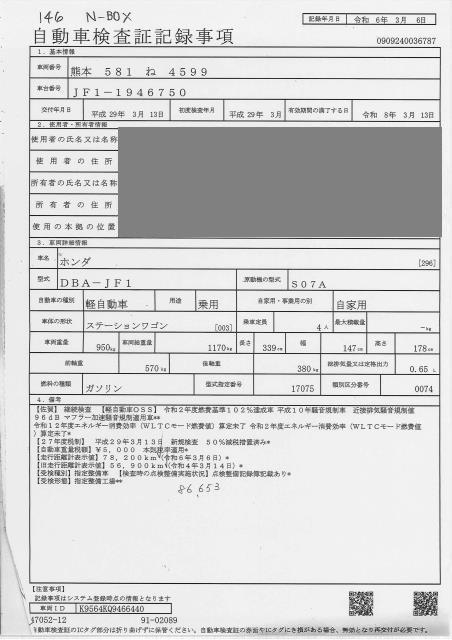 146 N-BOX
記録年月日 令和 6年 3月 6日
自動車検査証記録事項
0909240036787
1. 基本情報
車両番号 熊本 581 ね 4599
車台番号 JF1-1946750
交付年月日 平成 29年 3月 13日 初度検査年月 平成 29年 3月 有効期間の満了する日 令和 8年 3月 13日
2. 使用者・所有者情報
使用者の氏名又は名称
使用者の住所
所有者の氏名又は名称
所有者の住所
使用の本拠の位置
3. 車両詳細情報
車名 ホンダ [296]
型式 DBA-JF1 原動機の型式 S07A
自動車の種別 軽自動車 用途 乗用 自家用・事業用の別 自家用
車体の形状 ステーションワゴン [003] 乗車定員 4人 最大積載量 -kg
車両重量 950kg 車両総重量 1170kg 長さ 339cm 幅 147cm 高さ 178cm
前軸重 570kg 後軸重 380kg 総排気量又は定格出力 0.65 L
燃料の種類 ガソリン 型式指定番号 17075 類別区分番号 0074
4. 備考
【佐賀】 継続検査 【軽自動車OSS】 令和2年度燃費基準102%達成車 平成10年騒音規制車 近接排気騒音規制値
96dB マフラー加速騒音規制適用車**
令和12年度エネルギー消費効率(WLTCモード燃費値)算定未了 令和2年度エネルギー消費効率(WLTCモード燃費値
)算定未了*
【27年度税制】 平成29年3月13日 新規検査 50%減税措置済み*
【自動車重量税額】¥5,000 本則税率適用*
【走行距離計表示値】78,200km(令和6年3月6日)*
【旧走行距離計表示値】56,900km(令和4年3月14日)*
【受検種別】指定整備車 【検査時の点検整備実施状況】点検整備記録簿記載あり*
【受検形態】指定整備工場**
86,653
【注意事項】
記録事項はシステム登録時点の情報となります
車両ID K9564KQ9466440
47052-12 91-02089
自動車検査証のICタグ部分は折り曲げずに保管ください。自動車検査証の券面やICタグにき損がある場合、無効となり再交付が必要です。